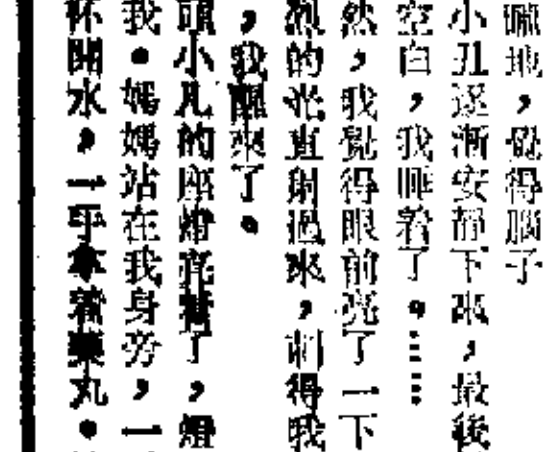 地，覺得腦子
小丑逐漸安靜下來，最後
空白，我睡着了。……
然，我覺得眼前亮了一下
烈的光直射過來，刺得我
，我醒來了。
頭小几的座燈亮着了，燈
我。媽媽站在我身旁，一
杯開水，一手拿着藥丸。